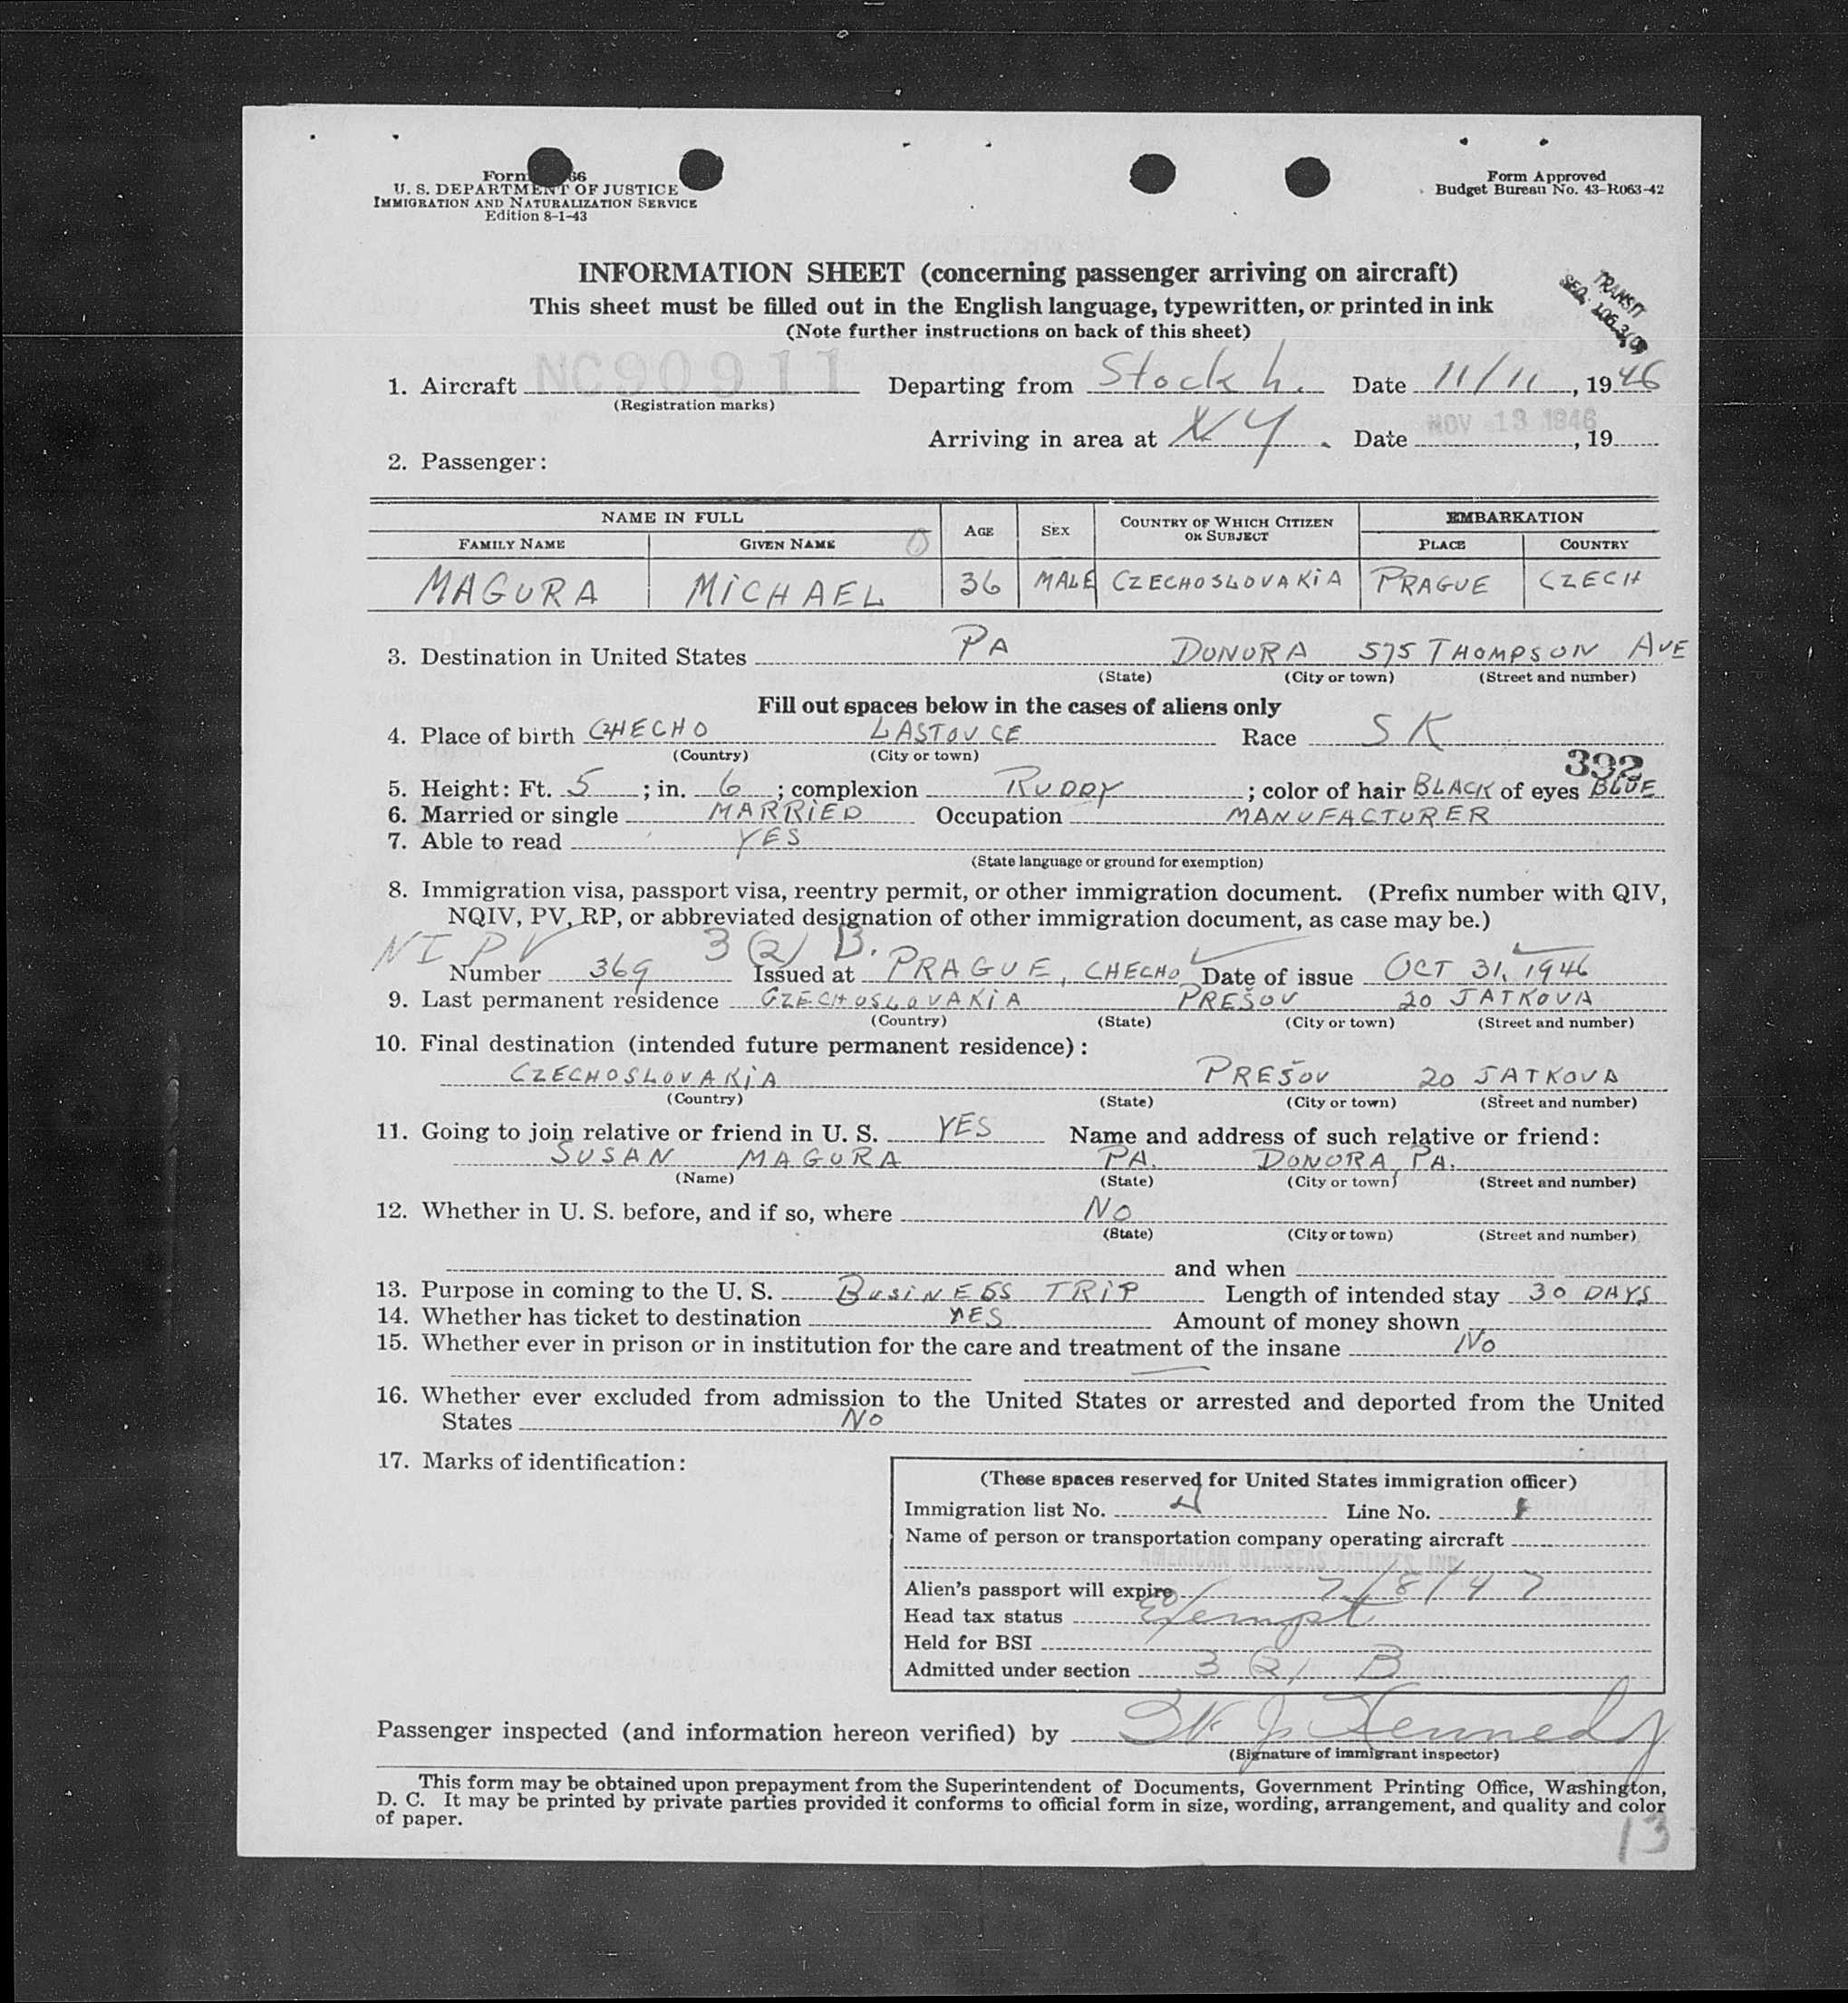 Form 66
U. S. DEPARTMENT OF JUSTICE
IMMIGRATION AND NATURALIZATION SERVICE
Edition 8-1-43
Form Approved
Budget Bureau No. 43-R063-42
INFORMATION SHEET (concerning passenger arriving on aircraft)
This sheet must be filled out in the English language, typewritten, or printed in ink
(Note further instructions on back of this sheet)
TRANSIT
SEQ.
1. Aircraft NC90911 Departing from Stockh. Date 11/11, 1946
(Registration marks)
Arriving in area at NY. Date NOV 13 1946, 19
2. Passenger:
NAME IN FULL AGE SEX COUNTRY OF WHICH CITIZEN OR SUBJECT EMBARKATION
FAMILY NAME GIVEN NAME PLACE COUNTRY
MAGURA MICHAEL 36 MALE CZECHOSLOVAKIA PRAGUE CZECH
3. Destination in United States PA DONORA 575 THOMPSON AVE
(State) (City or town) (Street and number)
Fill out spaces below in the cases of aliens only
4. Place of birth CHECHO LASTOVCE Race SK
(Country) (City or town)
392
5. Height: Ft. 5; in. 6; complexion RUDDY; color of hair BLACK of eyes BLUE
6. Married or single MARRIED Occupation MANUFACTURER
7. Able to read YES
(State language or ground for exemption)
8. Immigration visa, passport visa, reentry permit, or other immigration document. (Prefix number with QIV,
NQIV, PV, RP, or abbreviated designation of other immigration document, as case may be.)
NI PV 3(2) B.
Number 369 Issued at PRAGUE, CHECHO Date of issue OCT 31, 1946
9. Last permanent residence CZECHOSLOVAKIA PREŠOV 20 JATKOVA
(Country) (State) (City or town) (Street and number)
10. Final destination (intended future permanent residence):
CZECHOSLOVAKIA PREŠOV 20 JATKOVA
(Country) (State) (City or town) (Street and number)
11. Going to join relative or friend in U. S. YES Name and address of such relative or friend:
SUSAN MAGURA PA. DONORA, PA.
(Name) (State) (City or town) (Street and number)
12. Whether in U. S. before, and if so, where NO
(State) (City or town) (Street and number)
and when
13. Purpose in coming to the U. S. BUSINESS TRIP Length of intended stay 30 DAYS
14. Whether has ticket to destination YES Amount of money shown
15. Whether ever in prison or in institution for the care and treatment of the insane No
16. Whether ever excluded from admission to the United States or arrested and deported from the United
States No
17. Marks of identification:
(These spaces reserved for United States immigration officer)
Immigration list No. 4 Line No.
Name of person or transportation company operating aircraft
AMERICAN OVERSEAS AIRLINES INC
Alien's passport will expire 7/8/47
Head tax status Exempt
Held for BSI
Admitted under section 3(2) B
Passenger inspected (and information hereon verified) by Kennedy
(Signature of immigrant inspector)
This form may be obtained upon prepayment from the Superintendent of Documents, Government Printing Office, Washington,
D. C. It may be printed by private parties provided it conforms to official form in size, wording, arrangement, and quality and color
of paper.
13